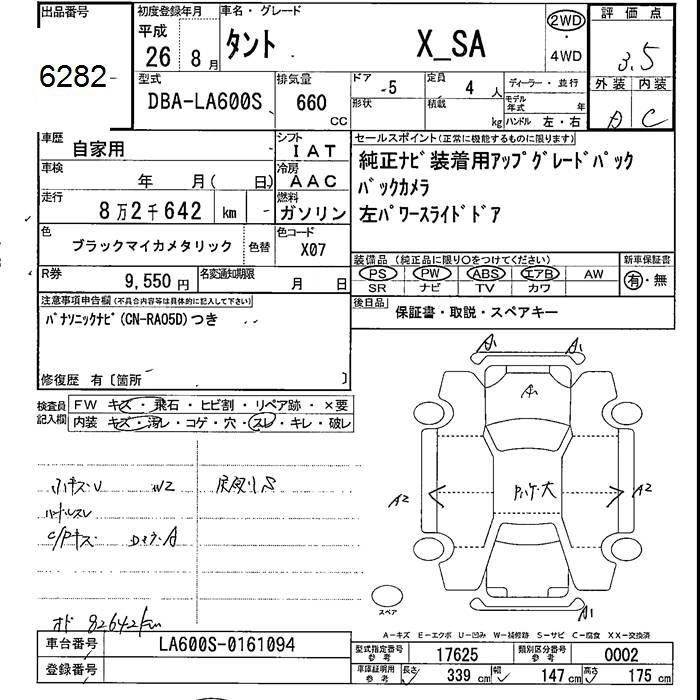 出品番号 初度登録年月 車名・グレード 2WD 評価点
平成
6282 26 8月 タント X_SA 4WD 3.5
型式 排気量 ドア 定員 ディーラー・並行 外装 内装
DBA-LA600S 660 CC -5 4人 モデル年式 年
形状 積載 kg ハンドル 左・右 A C
車歴 自家用 シフト IAT セールスポイント(正常に機能するものに限ります)
純正ナビ装着用アップグレードパック
車検 年 月( 日) 冷房 AAC バックカメラ
走行 8万2千642 km 燃料 ガソリン 左パワースライドドア
色 ブラックマイカメタリック 色替 色コード X07
装備品(純正品に限り○をつけてください) 新車保証書
PS PW ABS エアB AW 有・無
SR ナビ TV カワ
R券 9,550円 名変通知期限 月 日
後日品 保証書・取説・スペアキー
注意事項申告欄(不具合内容等は具体的に記入して下さい)
パナソニックナビ(CN-RA05D)つき
修復歴 有〔箇所 〕
検査員記入欄 FW キズ・飛石・ヒビ割・リペア跡・×要
内装 キズ・汚レ・コゲ・穴・スレ・キレ・破レ
A1 A1
A
A2 A2
W2
ハンドルスレ
C/Pキズ A
A1
スペア
オド 82642km
A-キズ E-エクボ U-凹み W-補修跡 S-サビ C-腐食 XX-交換済
車台番号 LA600S-0161094 型式指定番号 参考 17625 類別区分番号 参考 0002
登録番号 車庫証明用 参考 長さ 339cm 幅 147cm 高さ 175cm